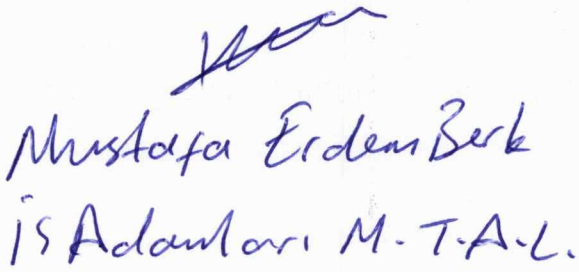 Mustafa Erdem Berk
İş Adamları M.T.A.L.